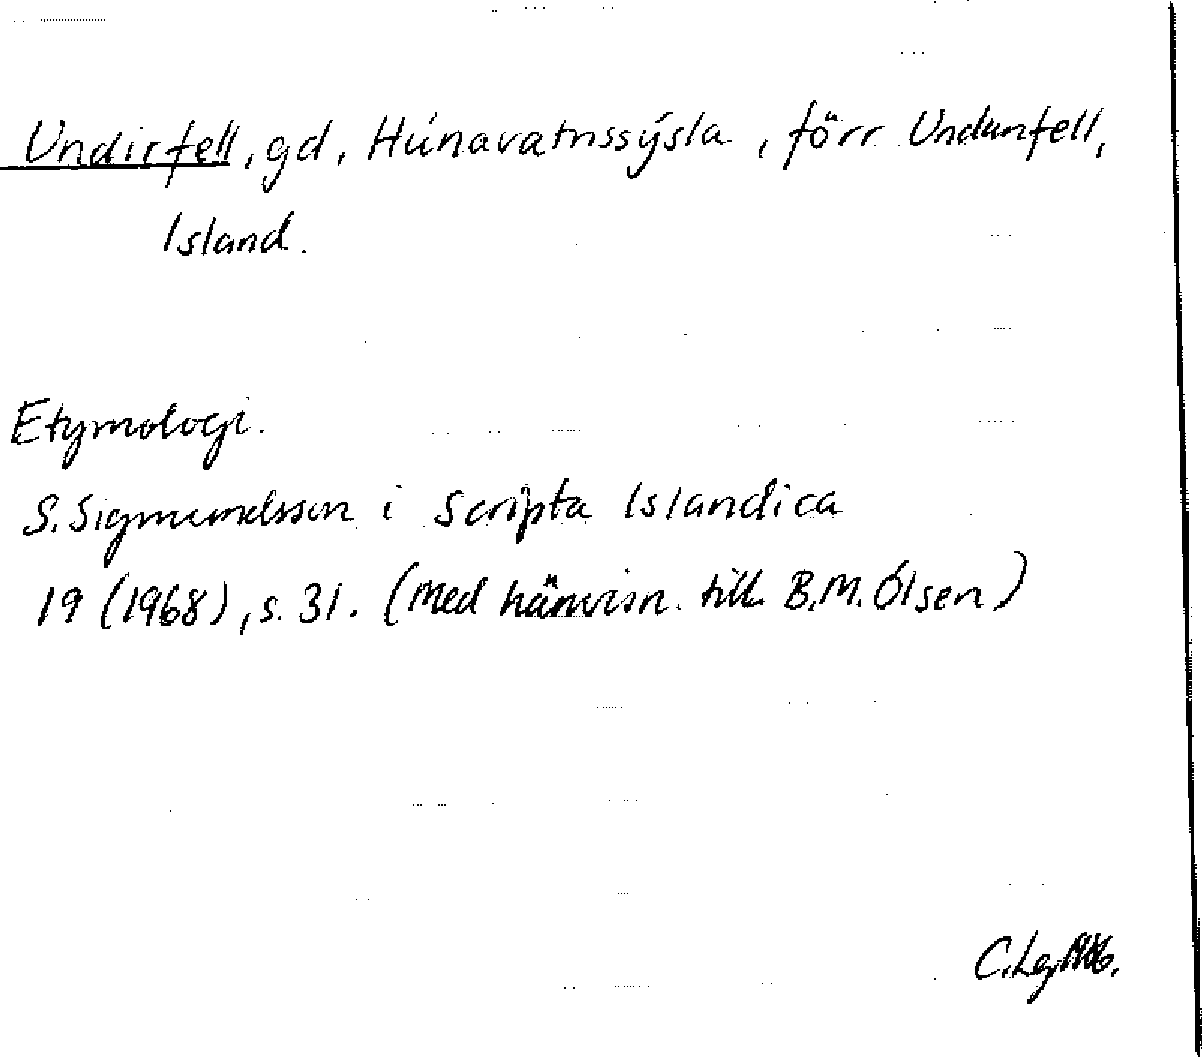 Undirfell, gd, Húnavatnssýsla, förr Undunfell,
Island.
Etymologi.
S. Sigmundsson i Scripta Islandica
19 (1968), s. 31. (Med hänvisn. till B.M. Ólsen)
C.